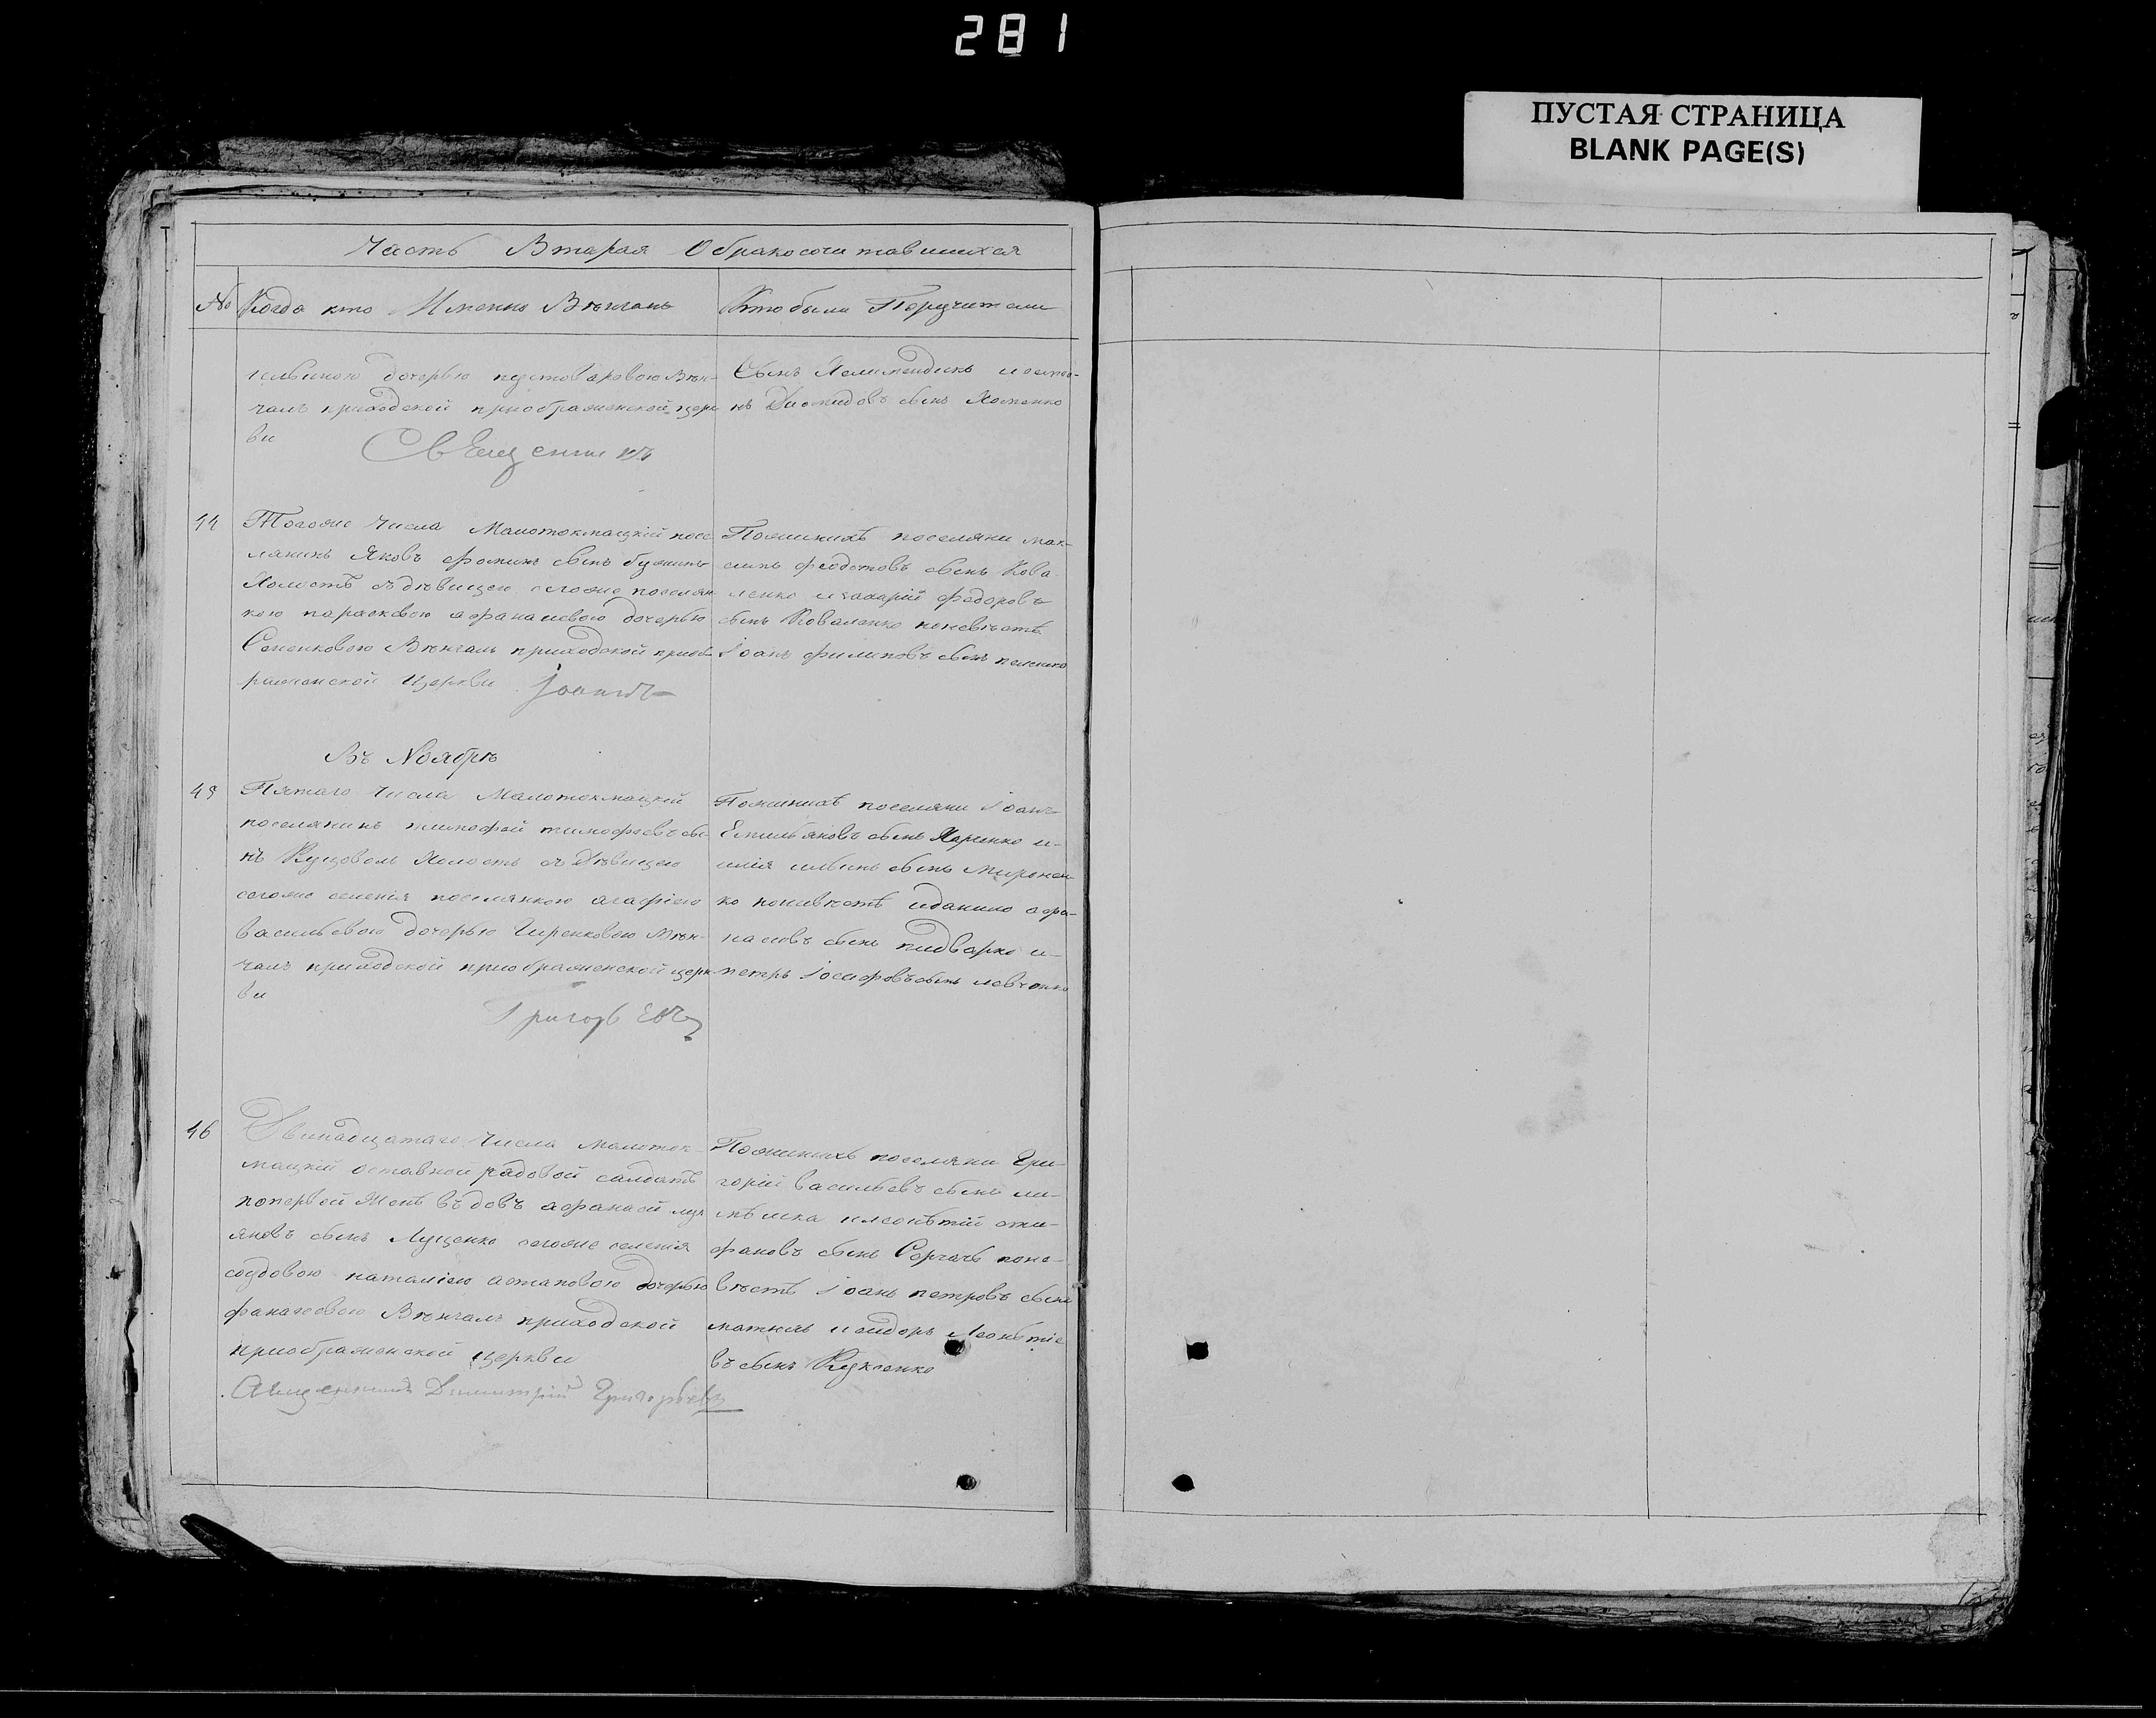 281
ПУСТАЯ СТРАНИЦА
BLANK PAGE(S)
Часть Вторая Обракосочитавшихся
№ Когда кто Именно Вѣнчанъ
Ктобыли Поручители
дочерью Вѣн-
чалъ приходской приобраменской церк
ви
Священникъ
Сынъ
нъ Диомидовъ сынъ Хоменко
44
Тогоже Числа Малотокмацкій посе
лянинъ Яковъ фоминъ сынъ
Холостъ здѣвицею тогоже поселян
кою парасковою афанасиевою дочерью
Семенковою Вѣнчалъ приходской приоб
раменской Церкви Іоаннъ
Поженихѣ поселяни мак-
симъ федотовъ сынъ Кова
ленко изахарій федоровъ
сынъ Коваленко поневѣстѣ
Іоанъ филиповъ сынъ
Въ Ноябрѣ
45
Пятаго Числа Малотокмацкій
поселянинъ тимофей тимофеевъ сы-
нъ Куцоволъ Холостъ съ Дѣвицею
тогоже селенія поселянкою агафіею
васильевою дочерью Гиренковою Вѣн-
чалъ приходской приобраменской церк
ви
Григорьевъ
Поженихѣ поселяни Іоанъ
Емильяновъ сынъ Харенко и-
илія ильинъ сынъ Миронен
ко поневѣстѣ иданило афа-
насовъ сынъ пидварко и-
петръ Іосифовъ сынъ левченко
46
Двинадцатаго Числа малоток-
мацкій оставной рядовой салдатъ
поперьвой Женѣ вѣдовъ афанасій лук
яновъ сынъ Луценко тогоже селенія
наталіею астаповою дочерью
Вѣнчалъ приходской
приобраменской церкви
Священникъ Димитрій Григорьевъ
Поженихѣ поселяни Гри-
горій васильевъ сынъ
илеонтій сти-
фановъ сынъ Сергачъ поне-
вѣстѣ Іоанъ петровъ сынъ
исидоръ Леонтіе
въ сынъ